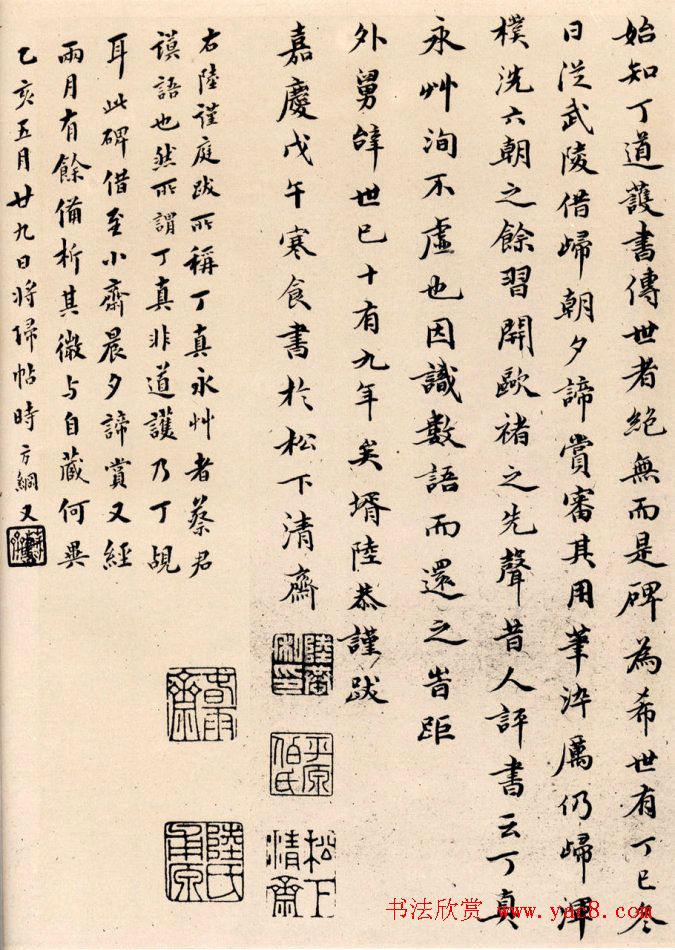 始知丁道護書傳世者絕無而是碑為希世有丁巳冬
日從武陵借歸朝夕諦賞審其用筆淬厲仍歸渾
樸洗六朝之餘習開歐褚之先聲昔人評書云丁真
永艸洵不虛也因識數語而還之旹距
外舅辭世已十有九年矣壻陸恭謹跋
嘉慶戊午寒食書於松下清齋
右陸謹庭跋所稱丁真永艸者蔡君
謨語也然所謂丁真非道護乃丁覘
耳此碑借至小齋晨夕諦賞又經
兩月有餘備析其微与自藏何異
乙亥五月廿九日將歸帖時方綱又
陸恭私印
平原伯氏
松下清齋
春雨齋
陸氏
書法欣赏 www.yac8.com